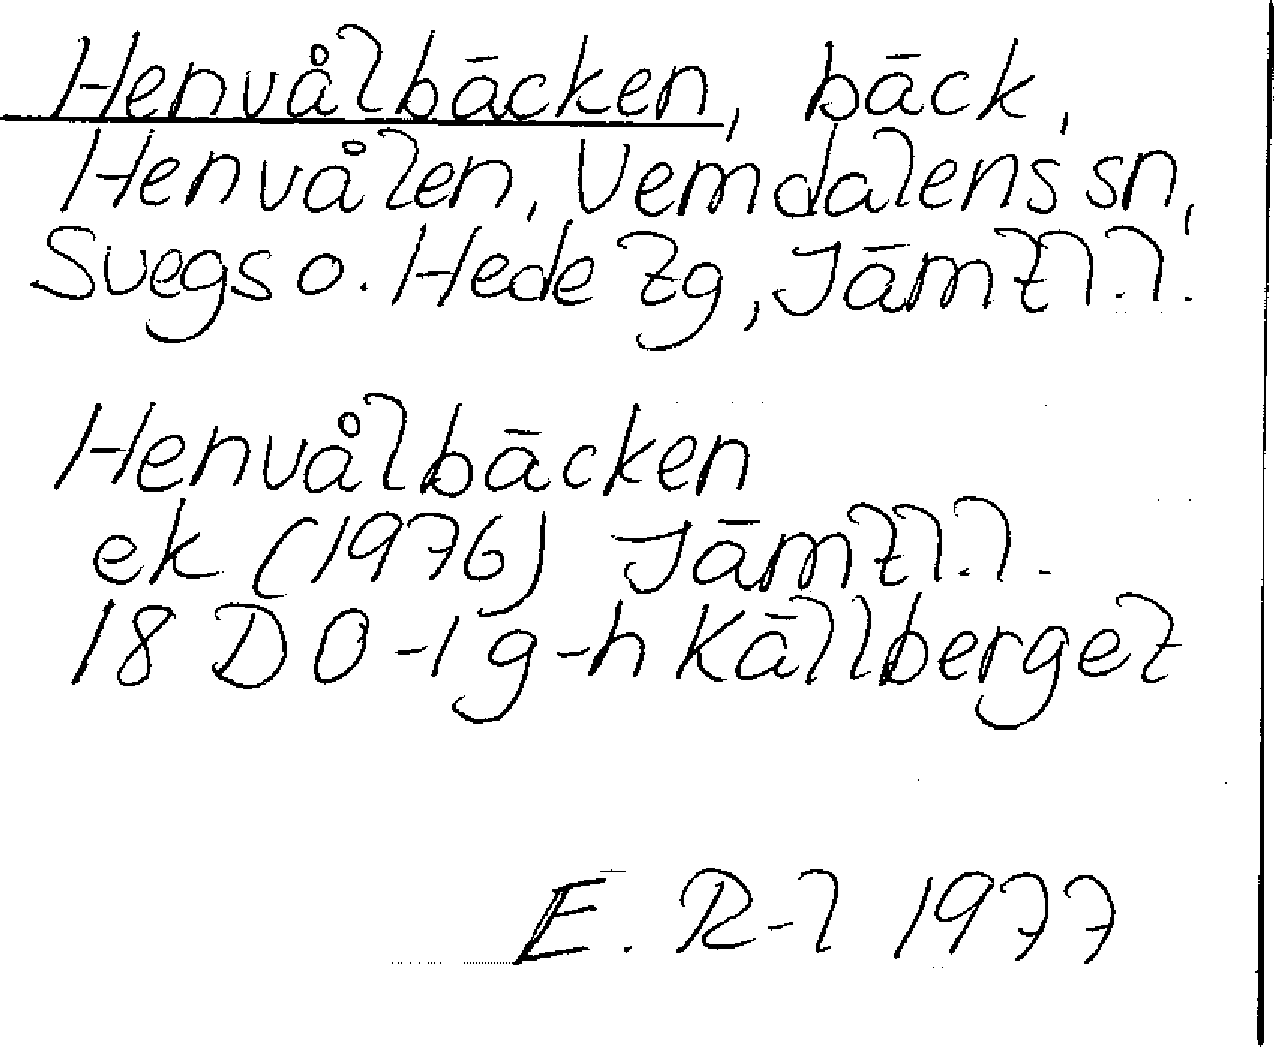 Henvålbäcken, bäck,
Henvålen, Vemdalens sn,
Svegs o. Hede tg, Jämtl.l.
Henvålbäcken
ek (1976) Jämtl.l.
18 D 0-1 g-h Källberget
E. R-l 1977